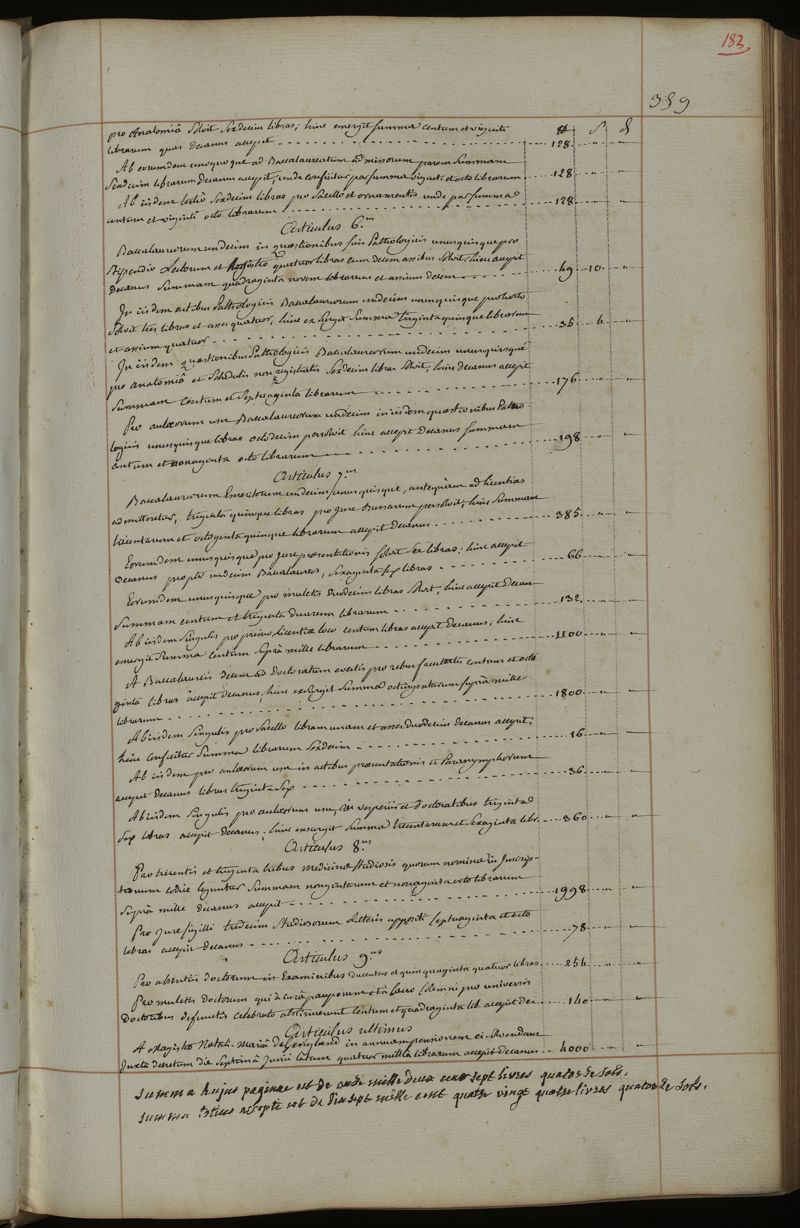 182
389
pro Anatomiâ Solvit Sexdecim libras; hinc emergit Summa centum et viginti # S d
librarum quas decanus accepit 128 " "
Ab eorumdem unoquoque ad Baccalaureatum admissorum parem Summam
Sexdecim librarum decanus accepit, unde conficitur par Summa viginti et octo librarum 128 " "
Ab iisdem Sexdecim libras pro Sacello et ornamentis unde par Summa
centum et viginti octo librarum 128 " "
Articulus 6.us
Baccalaureorum undecim in quæstionibus suis Pathologicis unusquisque pro
Stipendio Lectorum et quatuor libras cum decem assibus Solvit, hinc accepit
decanus Summam quadraginta novem librarum et assium decem 49 10 "
In iisdem actibus Pathologicis Baccalaureorum undecim unusquisque pro horto
Solvit tres libras et asses quatuor, hinc exsurgit Summa triginta quinque librarum
et assium quatuor 35 4 "
In iisdem quæstionibus Pathologicis Baccalaureorum undecim unusquisque
pro anatomiâ et Schedulis non registratis Sexdecim libras Solvit; hinc decanus accepit
Summam centum et Septuaginta librarum 176 " "
Pro aulæorum usu Baccalaureorum undecim in iisdem quæstionibus Patho
logicis unusquisque libras octodecim persolvit hinc accepit Decanus Summam
centum et nonaginta octo librarum 198 " "
Articulus 7.us
Baccalaureorum Emeritorum undecim unusquisque, antequam ad licentias
admitterentur, triginta quinque libras pro jure Bursarum persolvit, hinc Summam
trecentarum et octoginta quinque librarum accepit decanus 385 " "
Eorumdem unusquisque pro jure præsentationis Solvit Sex libras; hinc accepit
Decanus propter undecim Baccalaureos, Sexaginta Sex libras 66 " "
Eorumdem unusquisque pro muletis duodecim libras Solvit, hinc accepit Decan
Summam centum et triginta duarum librarum 132 " "
Ab iisdem Singulis pro primo licentiæ loco centum libras accepit decanus; hinc
emergit Summa centum Suprà mille librarum 1100 " "
A Baccalaureis decem ad doctoratum evectis pro rebus facultatis centum et octo
ginta libras accepit decanus, hinc exsurgit Summa octingentarum suprà mille
librarum 1800 " "
Ab iisdem Singulis pro Sacello libram unam et asses duodecim decanus accepit;
hinc conficitur Summa librarum Sexdecim 16 " "
Ab iisdem pro aulæorum usu in actibus præsentationis et Paranymphorum
accepit decanus libras triginta Sex 36 " "
Ab iisdem Singulis pro aulæorum usu, in vesperiis et doctoratibus triginta
Sex libras accepit decanus, hinc exsurgit Summa trecentarum et Sexaginta libr. 360 " "
Articulus 8.us
Pro trecentis et triginta tribus medicinæ Studiosis quorum nomina in Inscrip-
tionum codice leguntur Summam nongentarum et nonaginta octo librarum
Suprà mille decanus accepit 1998 " "
Pro Jure Sigilli tredecim Studiosorum Litteris appositi Septuaginta et octo
libras accepit decanus 78 " "
Articulus 9.us
Pro absentiis doctorum in Examinibus ducentas et quinquaginta quatuor libras 254 " "
Pro muletis doctorum qui à curâ pauperum et à Sacro Solemni pro universis
doctoribus defunctis celebrato abstinuerunt centum et quadraginta lib. accepit dec 140 " "
Articulus ultimus
A Magistro Natali-Mariâ de Gevigland in annuam pensionem ei Solvendam
Juxta decretum die Septimâ Junii latum quatuor millia librarum accepit decanus 4000 " "
Summa hujus paginæ est de onze mille deux cent sept livres quatorze sols.
Summa totius accepti est de dix sept mille cent quatre vingt quatre livres quatorze sols.